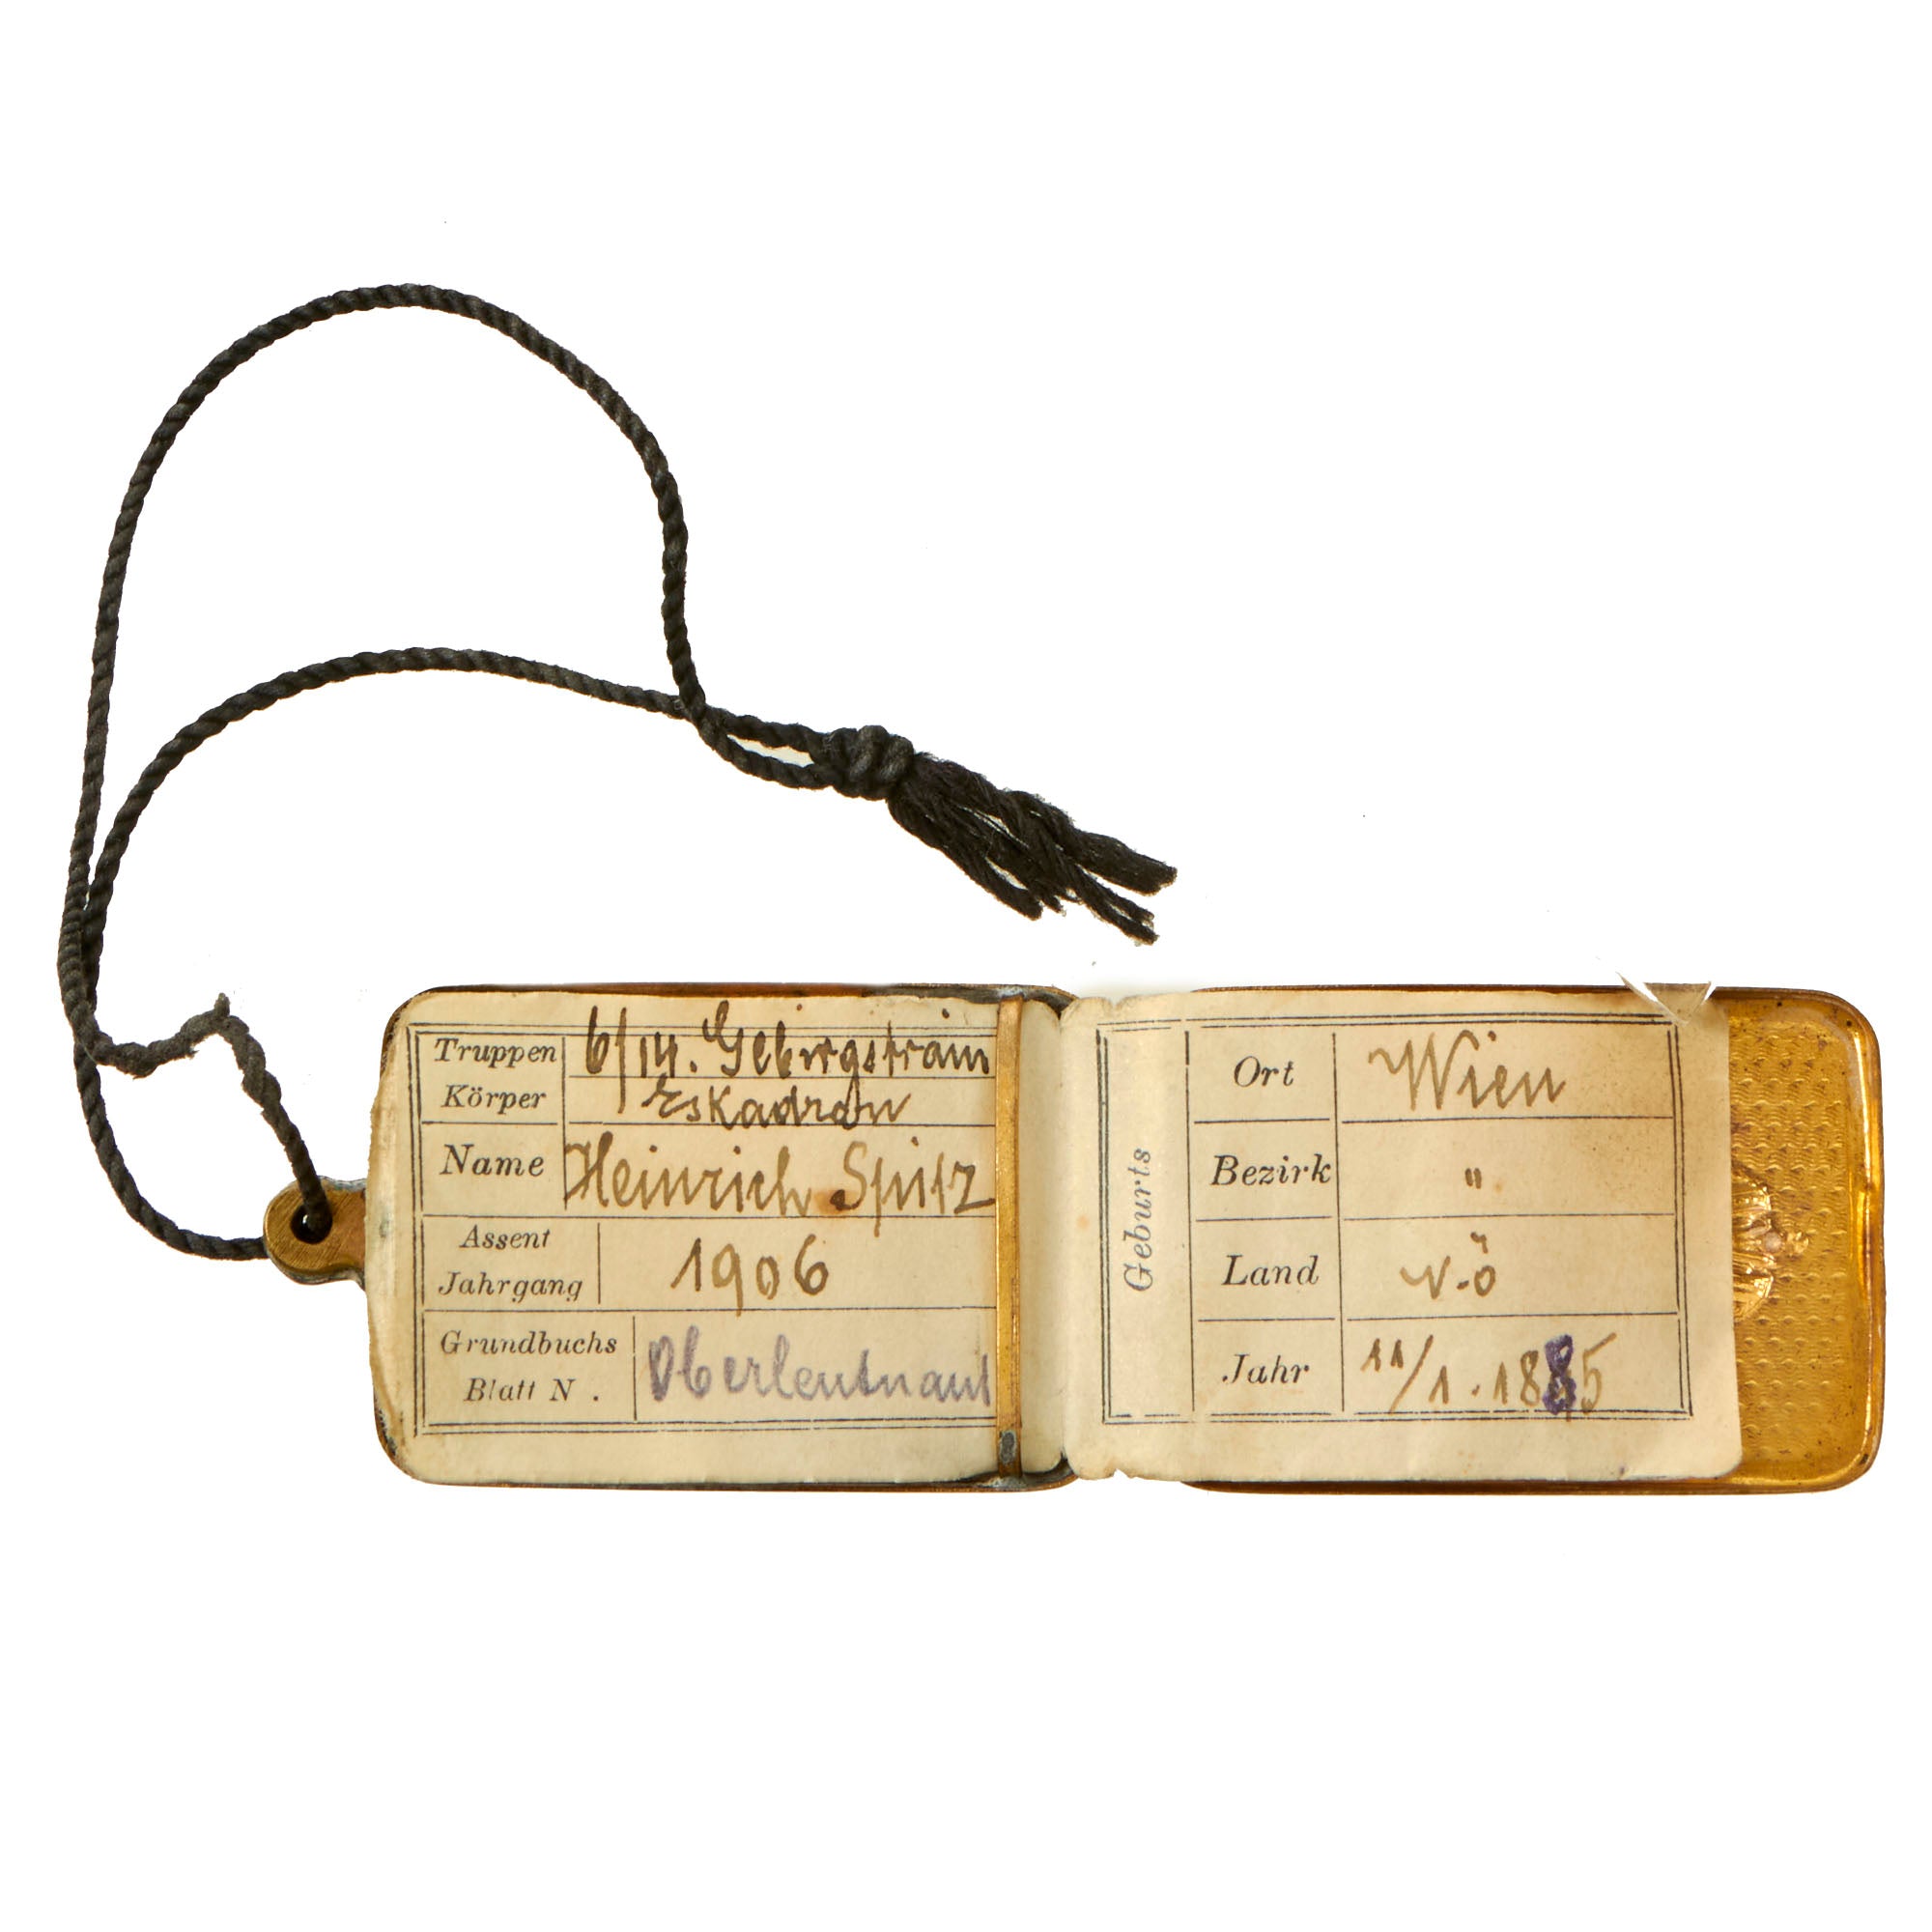 Truppen Körper 6/14. Gebirgstrain
Eskadron
Name Heinrich Spitz
Assent Jahrgang 1906
Grundbuchs Blatt N. Oberleutnant
Geburts
Ort Wien
Bezirk "
Land N.Ö
Jahr 11/1.1885